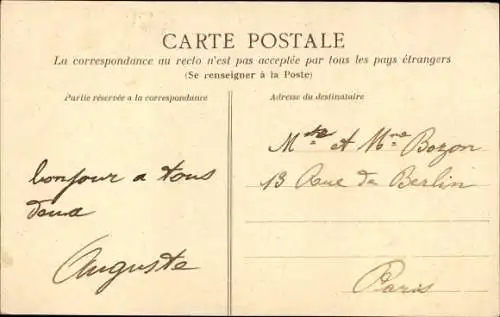 CARTE POSTALE
La correspondance au recto n'est pas acceptée par tous les pays étrangers
(Se renseigner à la Poste)
Partie réservée a la correspondance
Adresse du destinataire
bonjour a tous
deux
Auguste
et Mme Bozon
13 Rue de Berlin
Paris